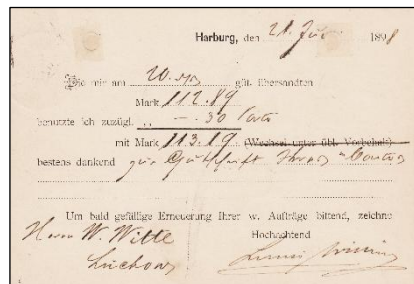 Harburg, den 21. 1898
Die mir am 20. güt. übersandten
Mark 112.89
benutzte ich zuzügl. „ —.30 Porto
mit Mark 113.19 (Wechsel unter übl. Vorbehalt)
bestens dankend zur Gutschrift Ihres Contos
Um bald gefällige Erneuerung Ihrer w. Aufträge bittend, zeichne
Herrn W. Witte Hochachtend
Lüchow